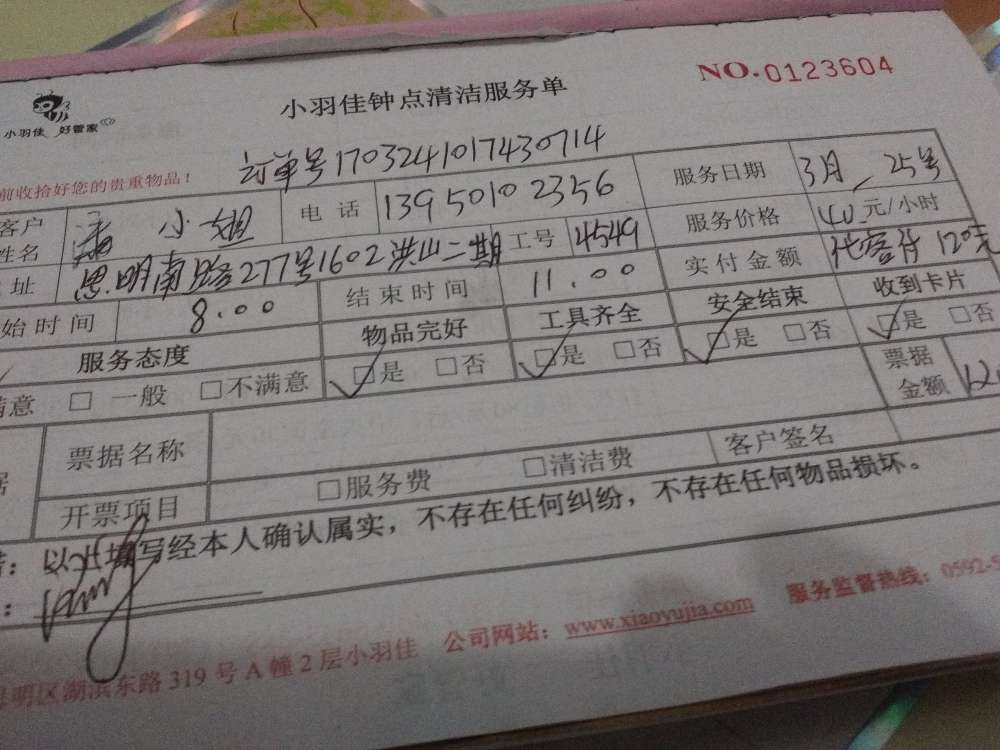 小羽佳 好管家
小羽佳钟点清洁服务单
NO.0123604
订单号17032410174307​14
前收拾好您的贵重物品!
客户姓名 小姐 电话 13950102356 服务日期 3月 25号
址 思明南路277号1602洪山二期 工号 4549 服务价格 40元/小时
始时间 8.00 结束时间 11.00 实付金额 代客付120元
服务态度 物品完好 工具齐全 安全结束 收到卡片
满意 □ 一般 □不满意 ✓□是 □否 ✓□是 □否 ✓□是 □否 ✓□是 □否
据 票据名称 票据金额 12
开票项目 □服务费 □清洁费 客户签名
以上填写经本人确认属实，不存在任何纠纷，不存在任何物品损坏。
思明区湖滨东路319号A幢2层小羽佳 公司网站：www.xiaoyujia.com 服务监督热线：0592-5